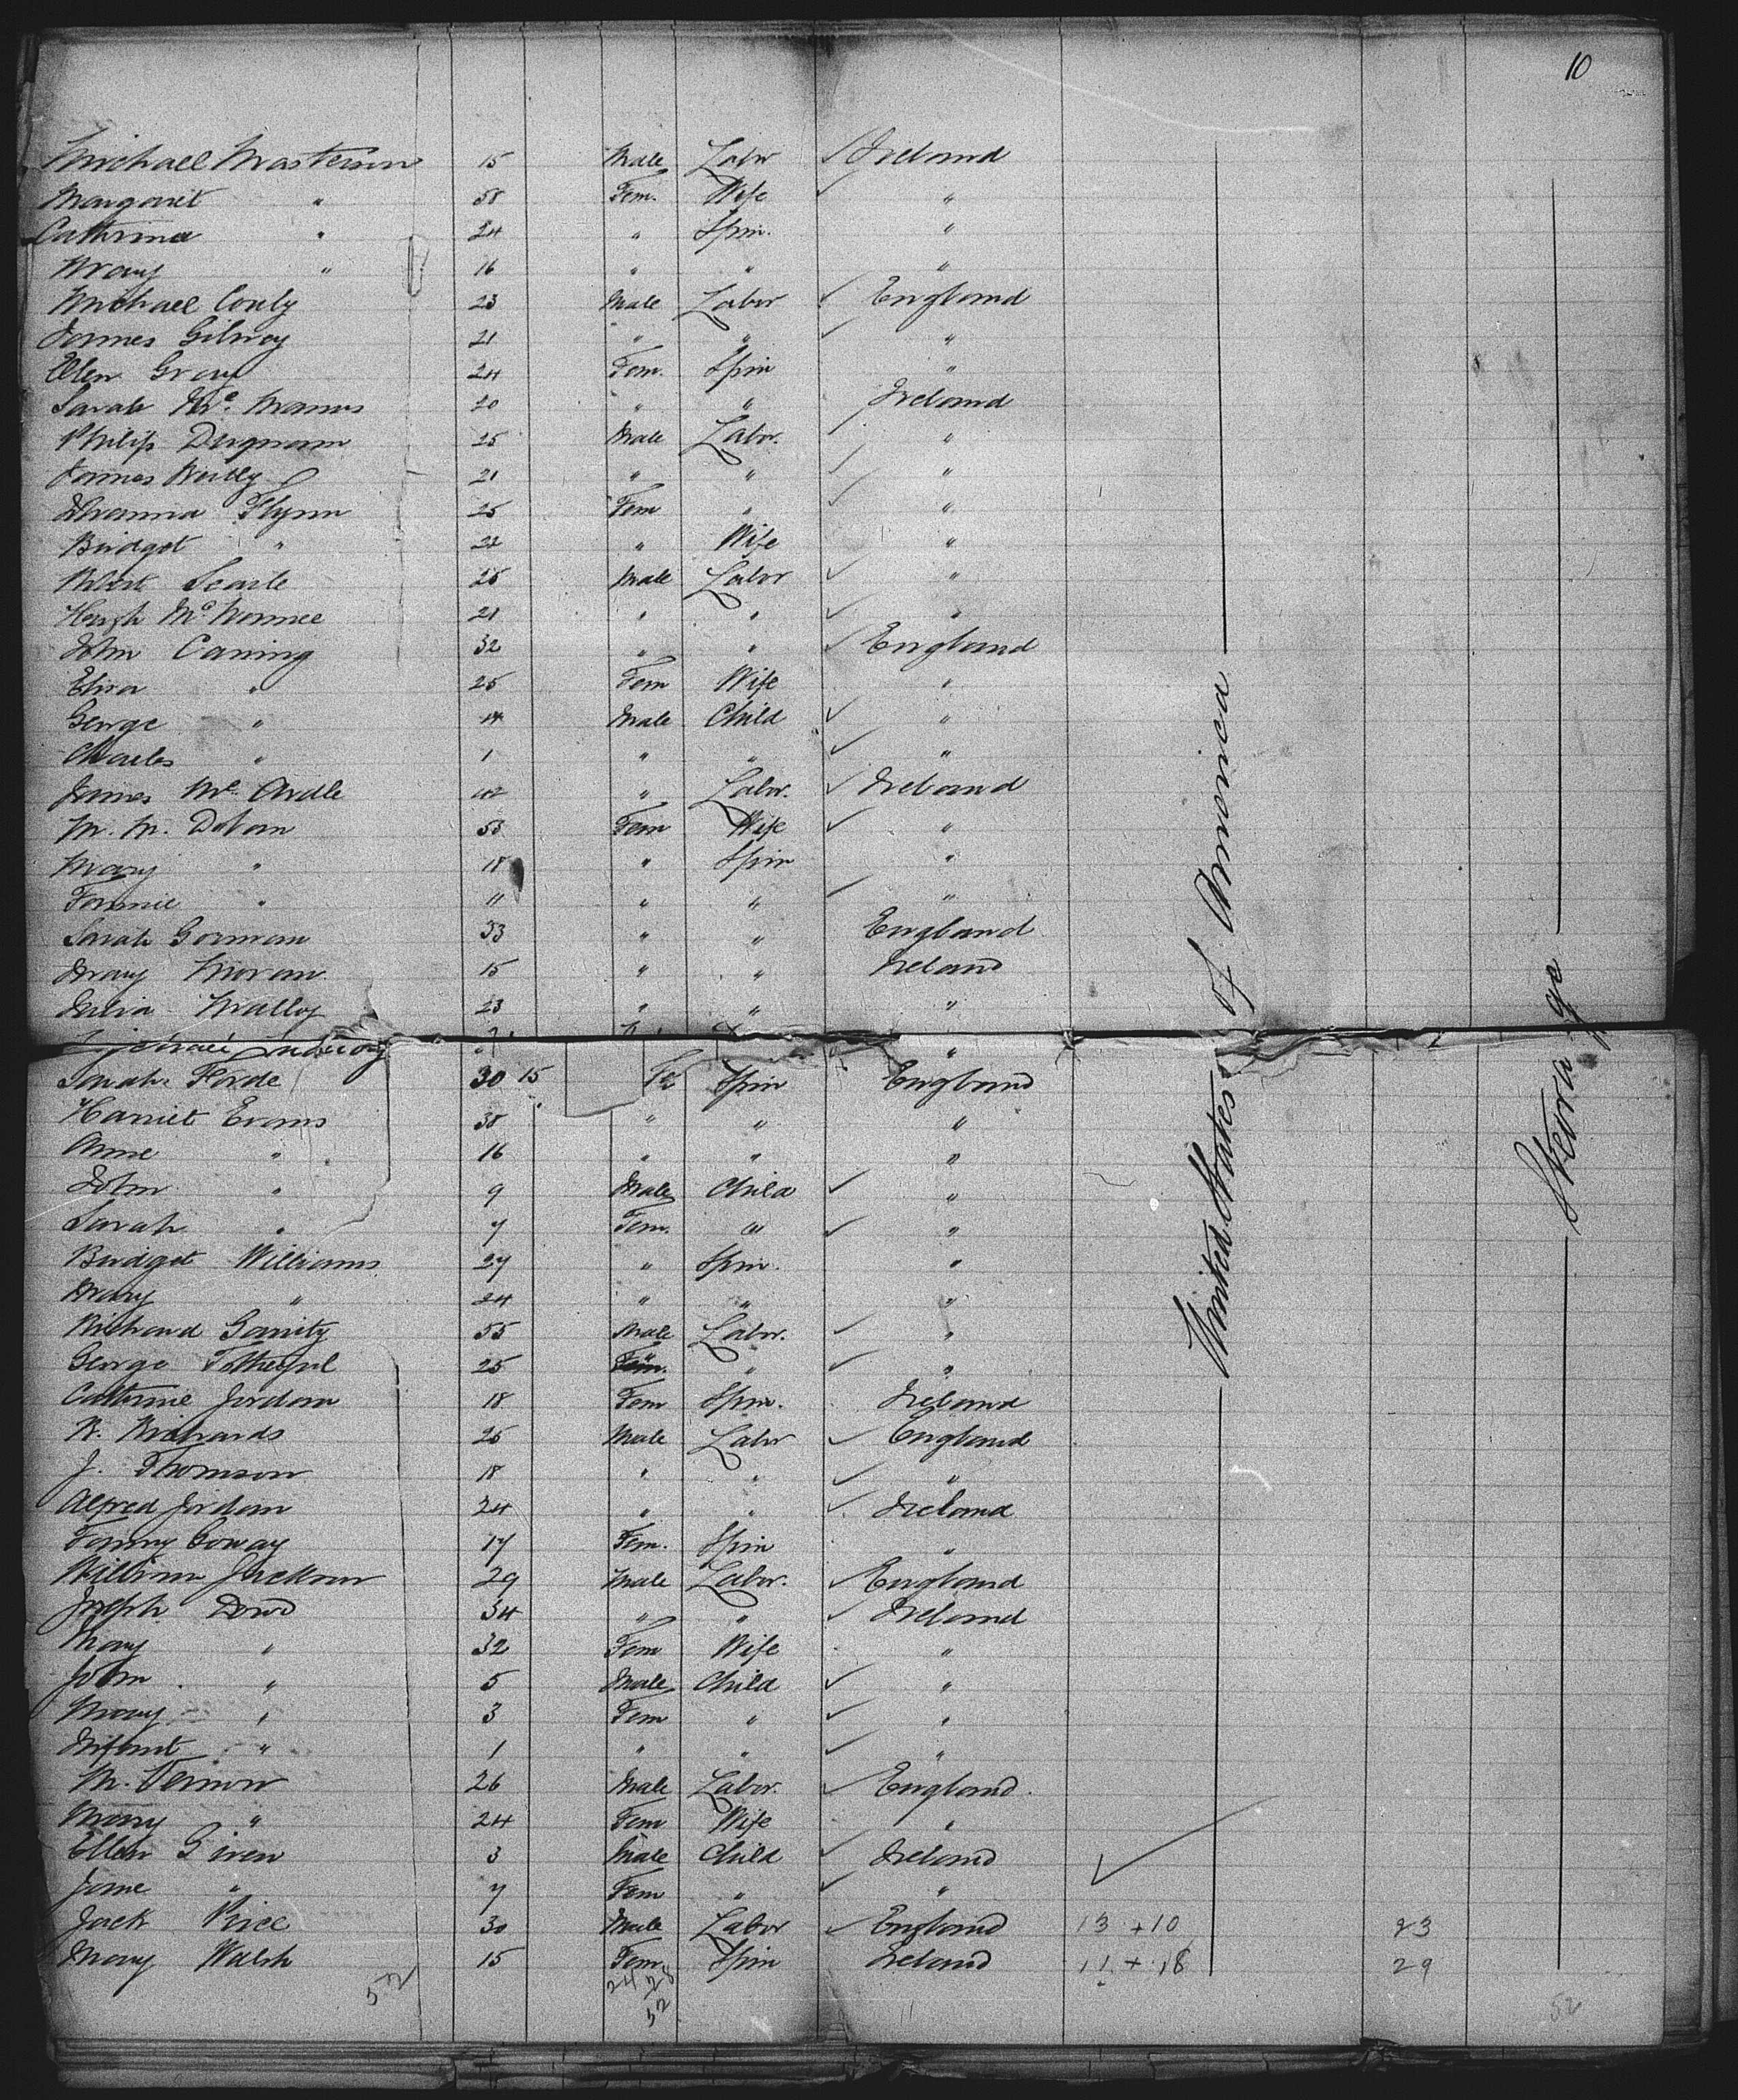 10
Michael Masterson 15 Male Labr ✓ Ireland
Margaret " 58 Fem. Wife ✓ "
Catherine " 24 " Spin. "
Mary " 16 " " "
Michael Conly 23 Male Labor ✓ England
James Gilroy 21 " " ✓ "
Ellen Gray 24 Fem. Spin "
Sarah Mc. Manus 20 " " Ireland
Philip Dugnam 25 Male Labor. ✓ "
James Reilly 21 " " ✓ "
Flynn 25 Fem " ✓ "
Bridget " 22 " Wife "
Searle 25 Male Labor ✓ "
Hugh Mc 21 " " ✓ "
John Caning 32 " " ✓ England
Eliza " 25 Fem Wife "
George " 14 Male Child ✓ "
Charles " 1 " " ✓ "
James Mc. Ardle 42 " Labor. ✓ Ireland
M. M. Dolan 53 Fem Wife ✓ "
Mary " 18 " Spin "
Fannie " 11 " " ✓ "
Sarah Gorman 33 " " England
Mary Moran 15 " " Ireland
Julia Mally 23 " " "
"
Sarah Forde 30 15 Fe Spin England
Harriet Evans 38 " " "
Anne " 16 " " "
John " 9 Male Child ✓ "
Sarah " 7 Fem. " ✓ "
Bridget Williams 27 " Spin. "
Mary " 24 " " "
Richard Garrity 55 Male Labor. ✓ "
George 25 " " ✓ "
Catherine Jordan 18 Fem Spin. Ireland
R. Richards 25 Male Labr ✓ England
J. Thomson 18 " " ✓ "
Alfred Jordan 24 " " ✓ Ireland
Fanny Conway 17 Fem. Spin "
William Jackson 29 Male Labor. ✓ England
Joseph Dowd 34 " " ✓ Ireland
Mary " 32 Fem Wife "
John " 5 Male Child ✓ "
Mary " 3 Fem " ✓ "
Infant " 1 " " ✓ "
M. Vernon 26 Male Labor. ✓ England.
Mary " 24 Fem Wife "
Ellen Given 3 Male Child ✓ Ireland ✓
Jane " 7 Fem " ✓ "
Jack Price 30 Male Labor ✓ England 13 + 10 23
Mary Walsh 15 Fem. Spin Ireland 11 + 18 29
52 24 28 52 52
United States of America
Steerage